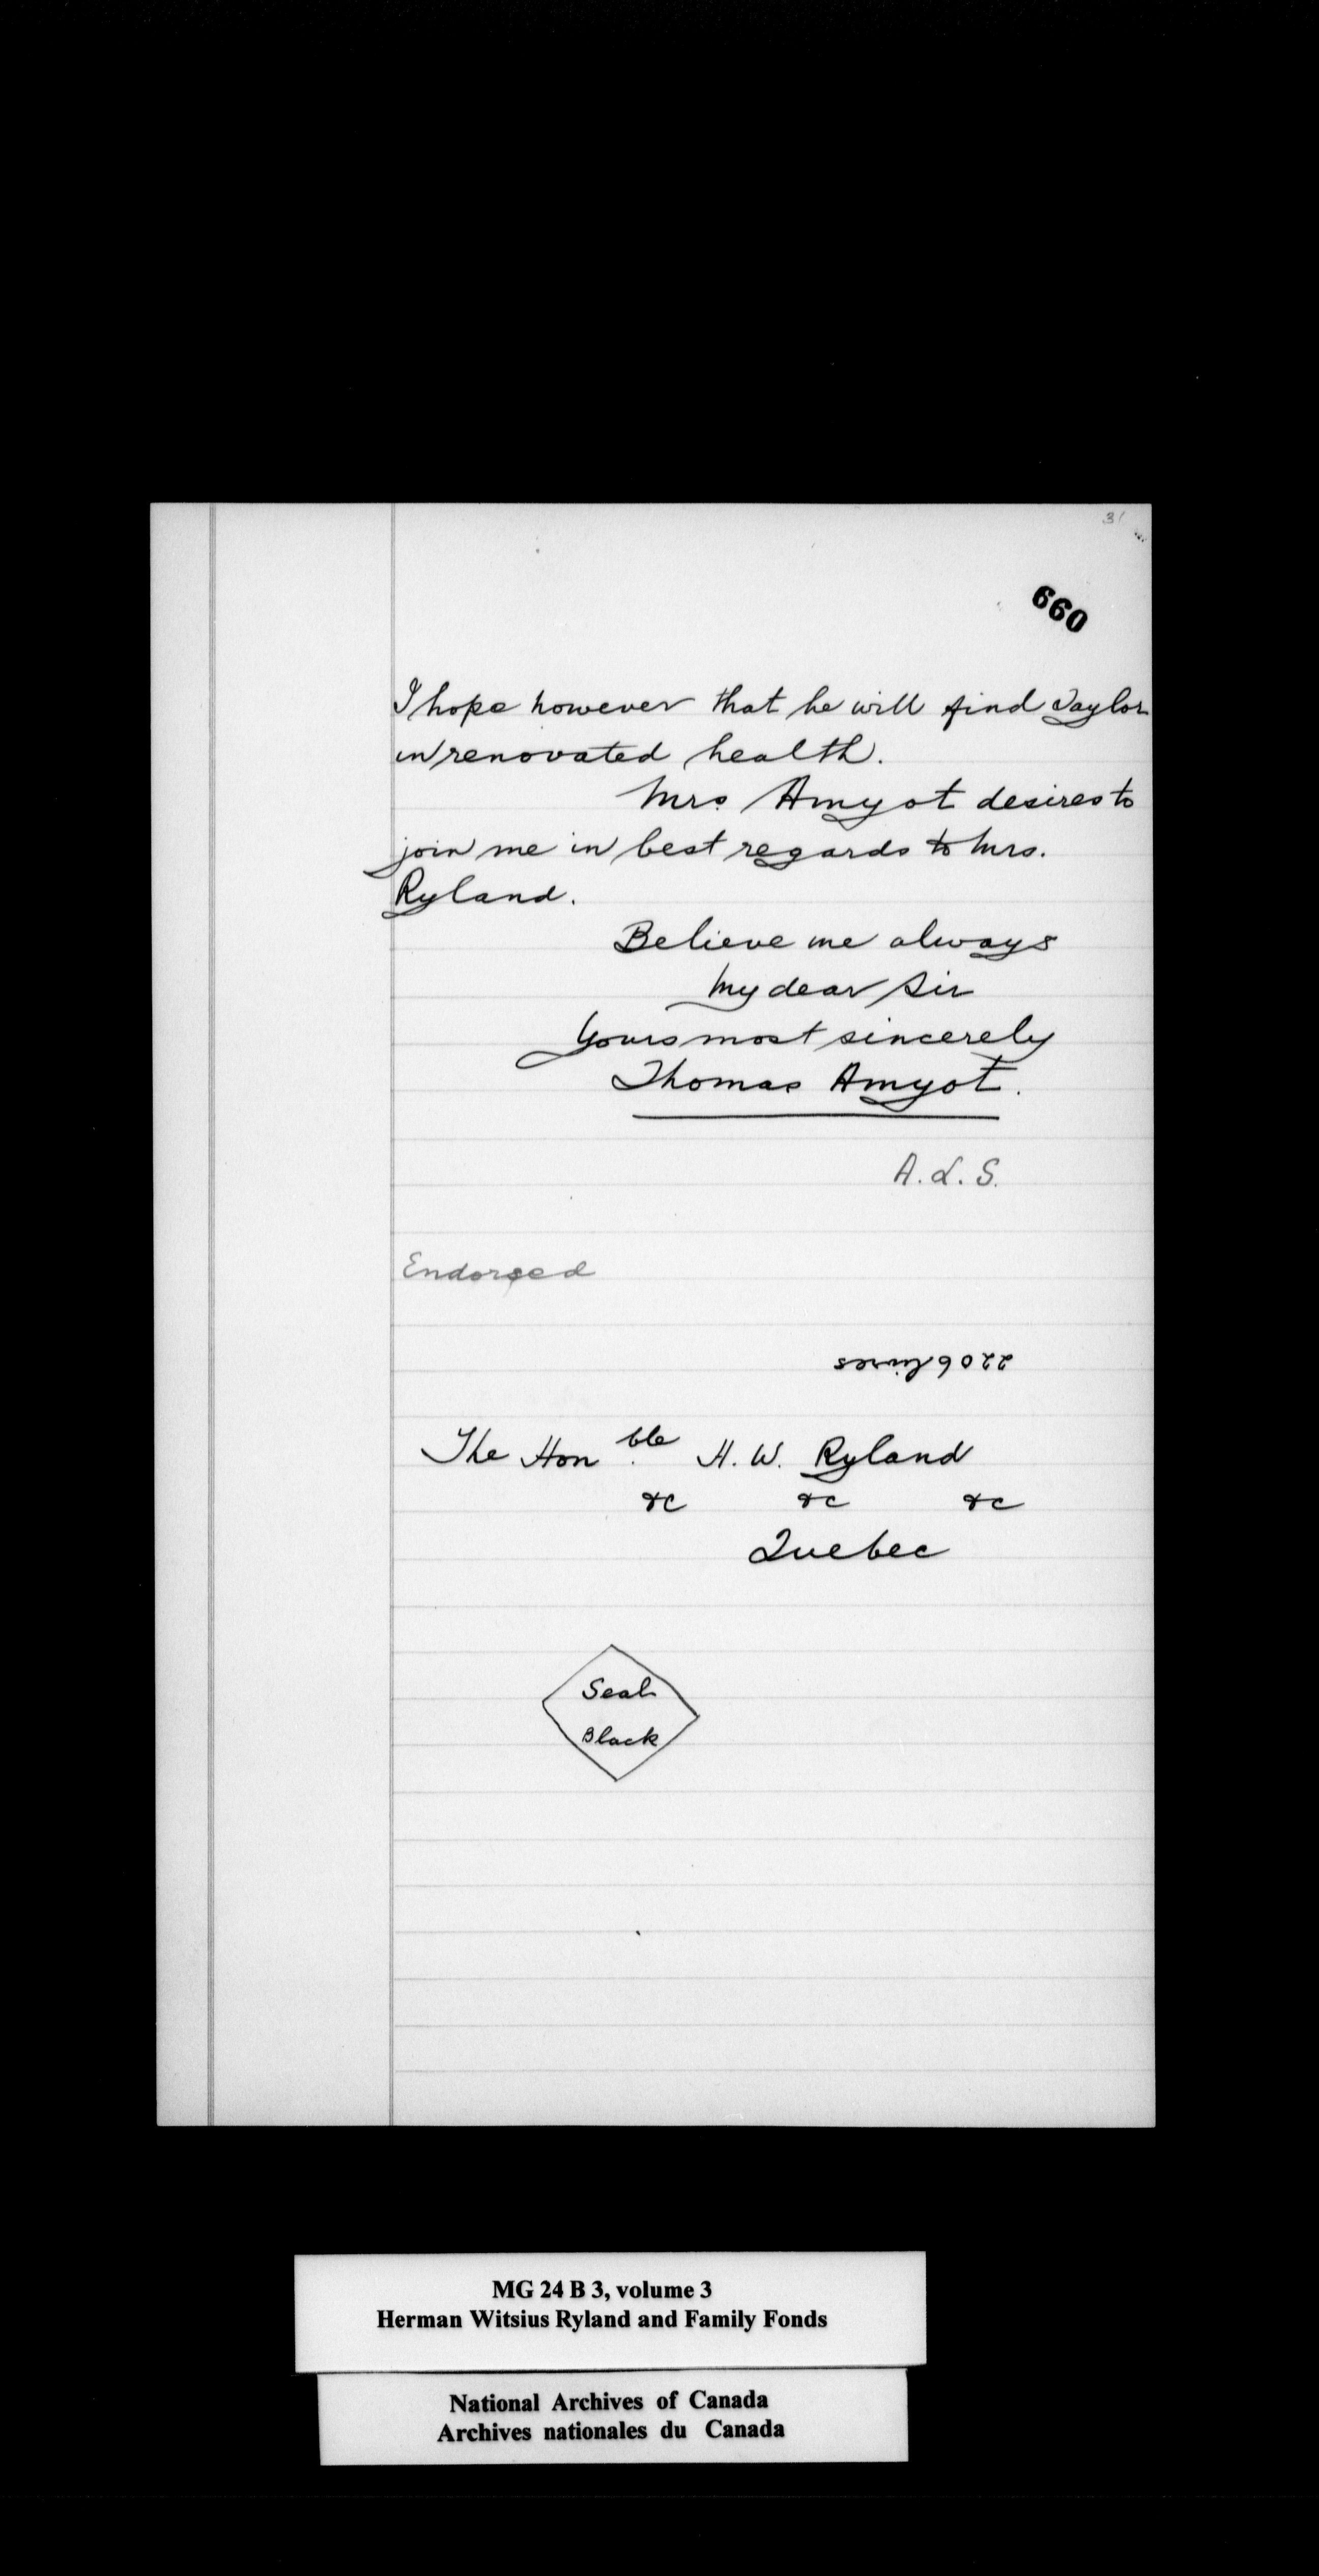 31
660
I hope however that he will find Taylor
in renovated health.
Mrs Amyot desires to
join me in best regards to Mrs.
Ryland.
Believe me always
My dear Sir
Yours most sincerely
Thomas Amyot.
A.L.S.
Endorsed
2206 lines
The Hon ble H. W. Ryland
&c &c &c
Quebec
Seal
Black
MG 24 B 3, volume 3
Herman Witsius Ryland and Family Fonds
National Archives of Canada
Archives nationales du Canada